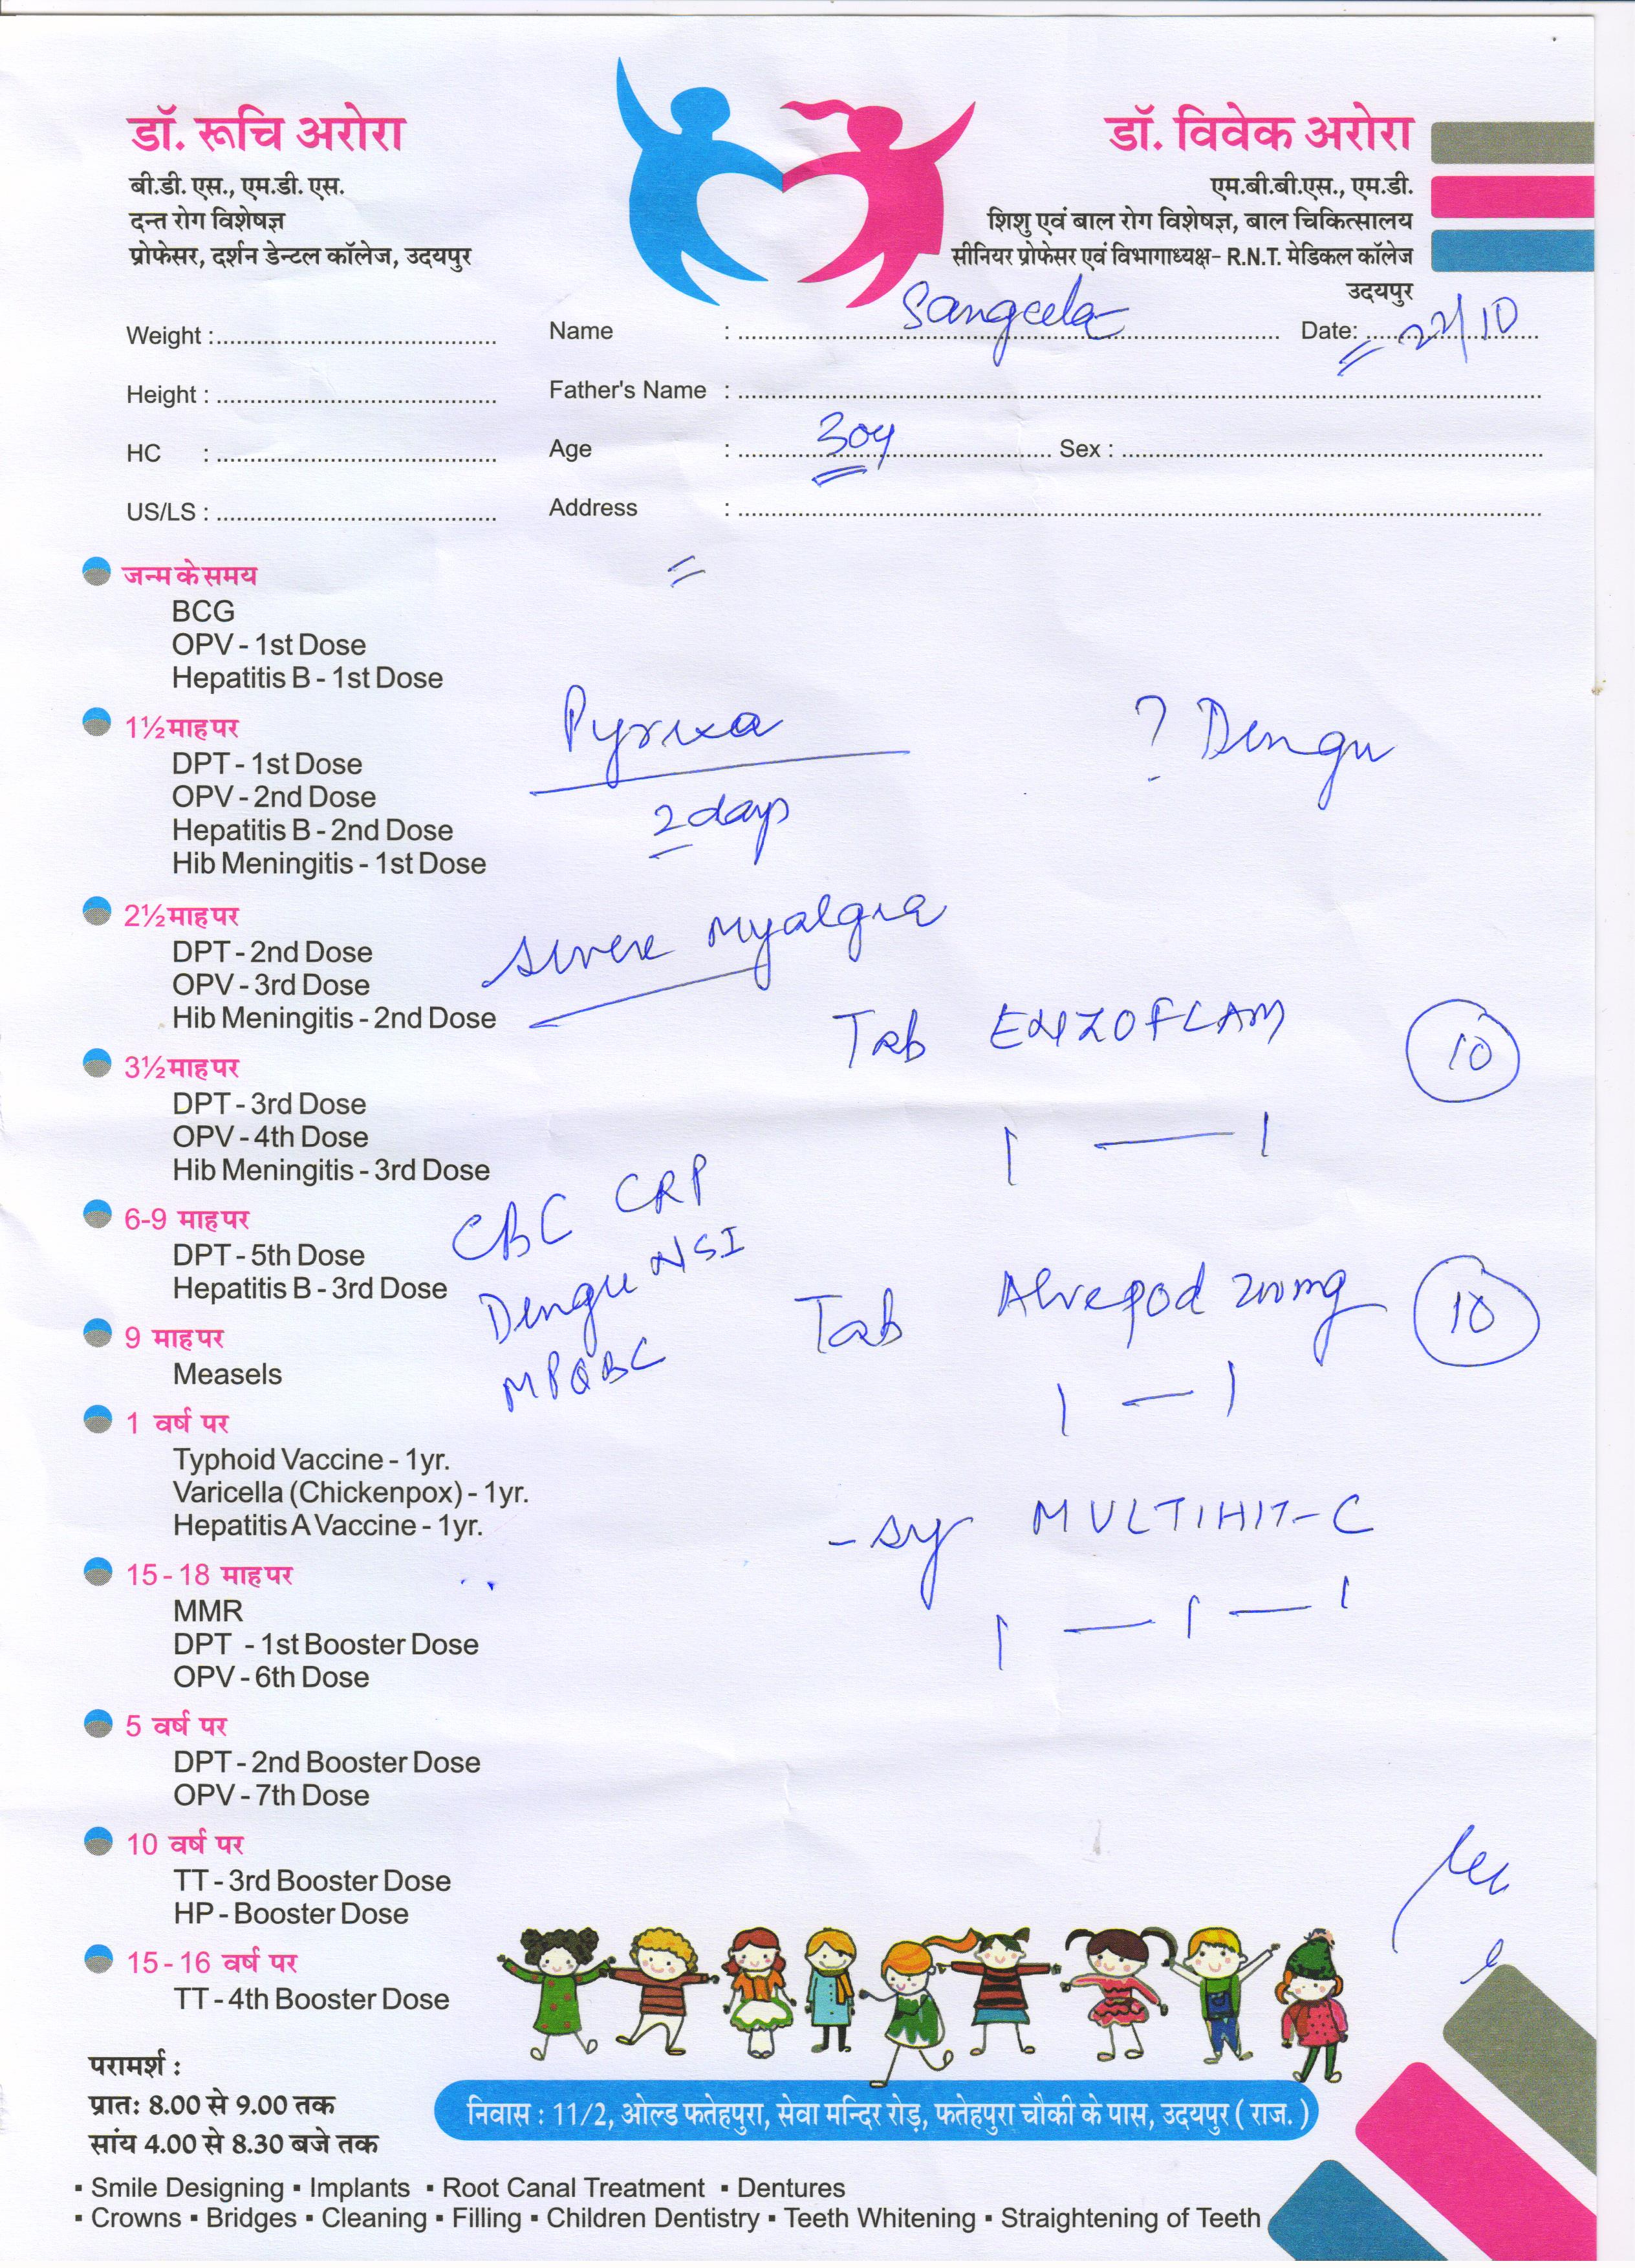 डॉ. रूचि अरोरा
बी.डी. एस., एम.डी. एस.
दन्त रोग विशेषज्ञ
प्रोफेसर, दर्शन डेन्टल कॉलेज, उदयपुर
डॉ. विवेक अरोरा
एम.बी.बी.एस., एम.डी.
शिशु एवं बाल रोग विशेषज्ञ, बाल चिकित्सालय
सीनियर प्रोफेसर एवं विभागाध्यक्ष- R.N.T. मेडिकल कॉलेज
उदयपुर
Weight : Name : Sangeeta Date: 22/10
Height : Father's Name :
HC : Age : 30y Sex :
US/LS : Address :
जन्म के समय
BCG
OPV - 1st Dose
Hepatitis B - 1st Dose
1½ माह पर
DPT - 1st Dose
OPV - 2nd Dose
Hepatitis B - 2nd Dose
Hib Meningitis - 1st Dose
2½ माह पर
DPT - 2nd Dose
OPV - 3rd Dose
Hib Meningitis - 2nd Dose
3½ माह पर
DPT - 3rd Dose
OPV - 4th Dose
Hib Meningitis - 3rd Dose
6-9 माह पर
DPT - 5th Dose
Hepatitis B - 3rd Dose
9 माह पर
Measels
1 वर्ष पर
Typhoid Vaccine - 1yr.
Varicella (Chickenpox) - 1yr.
Hepatitis A Vaccine - 1yr.
15 - 18 माह पर
MMR
DPT - 1st Booster Dose
OPV - 6th Dose
5 वर्ष पर
DPT - 2nd Booster Dose
OPV - 7th Dose
10 वर्ष पर
TT - 3rd Booster Dose
HP - Booster Dose
15 - 16 वर्ष पर
TT - 4th Booster Dose
Pyrexa
2 days
? Dengu
severe myalgia
Tab ENZOFLAM 10
1 — 1
CBC CRP
Dengue NSI
MPQBC
Tab 200mg 10
1 — 1
- sy MULTIHIT-C
1 — 1 — 1
परामर्श :
प्रातः 8.00 से 9.00 तक
सांय 4.00 से 8.30 बजे तक
निवास : 11/2, ओल्ड फतेहपुरा, सेवा मन्दिर रोड़, फतेहपुरा चौकी के पास, उदयपुर ( राज. )
▪ Smile Designing ▪ Implants ▪ Root Canal Treatment ▪ Dentures
▪ Crowns ▪ Bridges ▪ Cleaning ▪ Filling ▪ Children Dentistry ▪ Teeth Whitening ▪ Straightening of Teeth